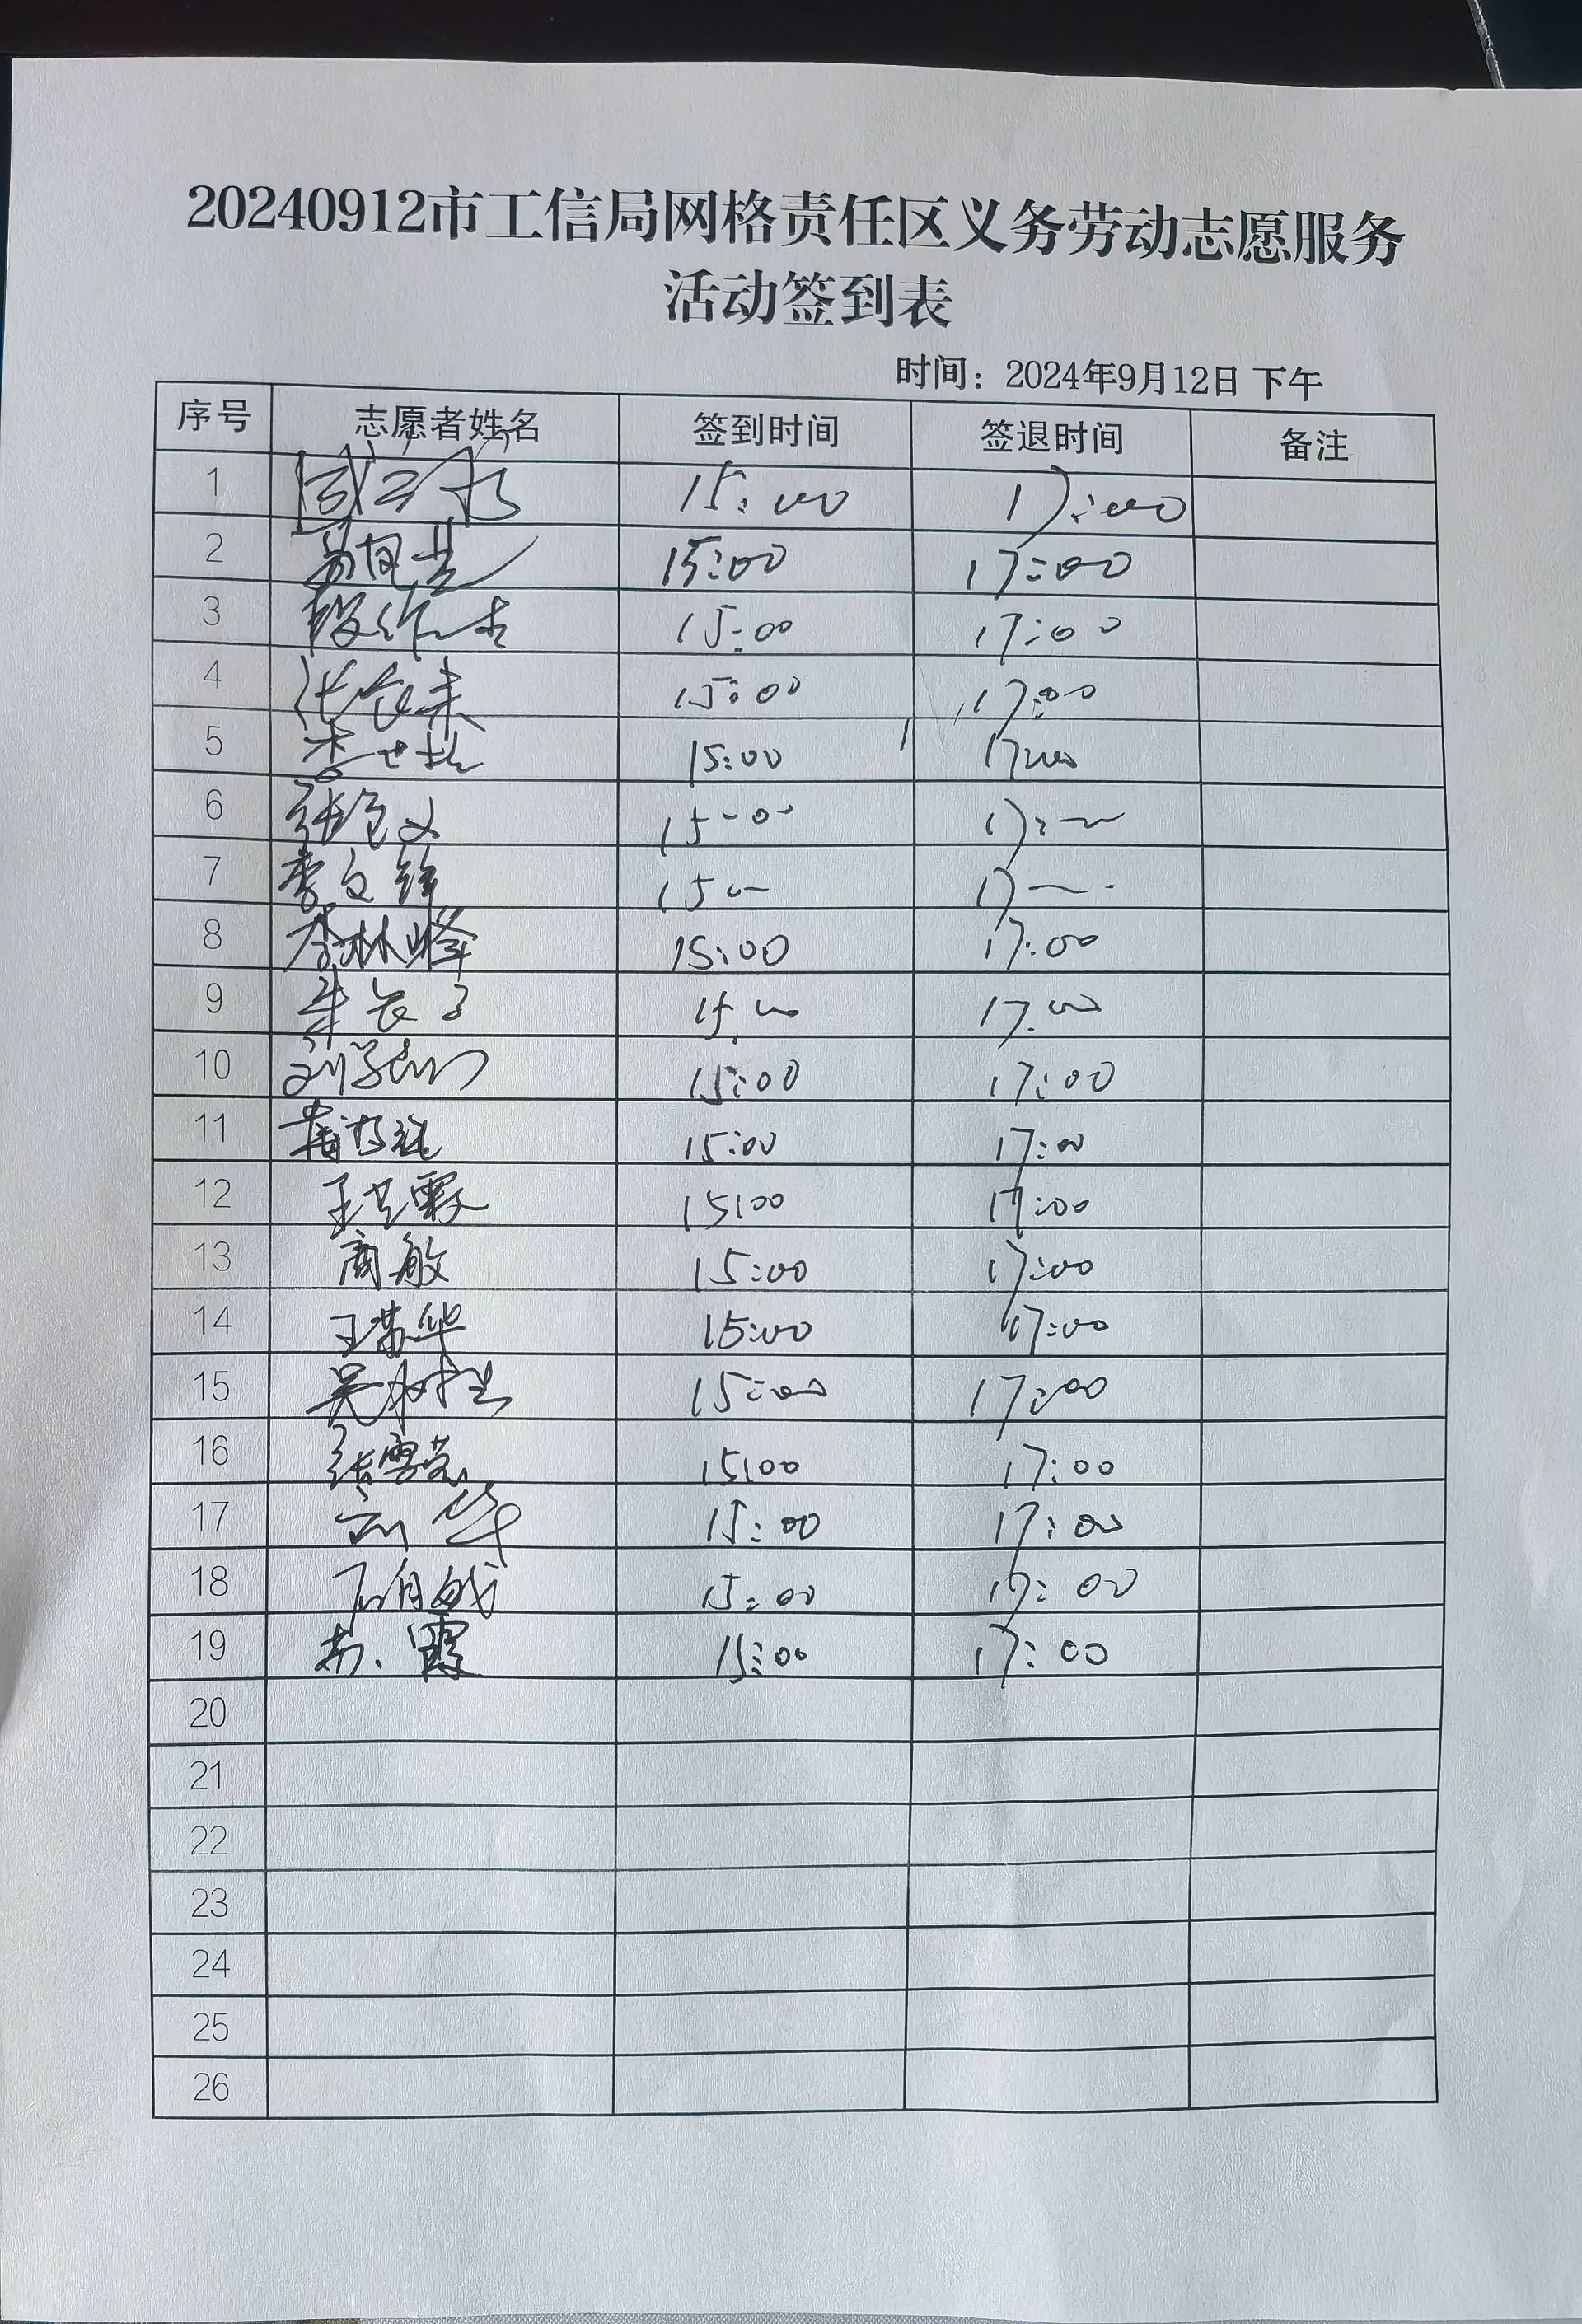 20240912市工信局网格责任区义务劳动志愿服务
活动签到表
时间：2024年9月12日 下午
序号 志愿者姓名 签到时间 签退时间 备注
1 15:00 17:00
2 15:00 17:00
3 15:00 17:00
4 15:00 17:00
5 15:00 17:00
6 15:00 17:
7 李文锋 15 17
8 李林峰 15:00 17:00
9 15:00 17:00
10 15:00 17:00
11 15:00 17:00
12 王 霞 15:00 17:00
13 商敏 15:00 17:00
14 王苏华 15:00 17:00
15 吴树生 15:00 17:00
16 张雪莹 15:00 17:00
17 刘华 15:00 17:00
18 15:00 17:00
19 苏霞 15:00 17:00
20
21
22
23
24
25
26